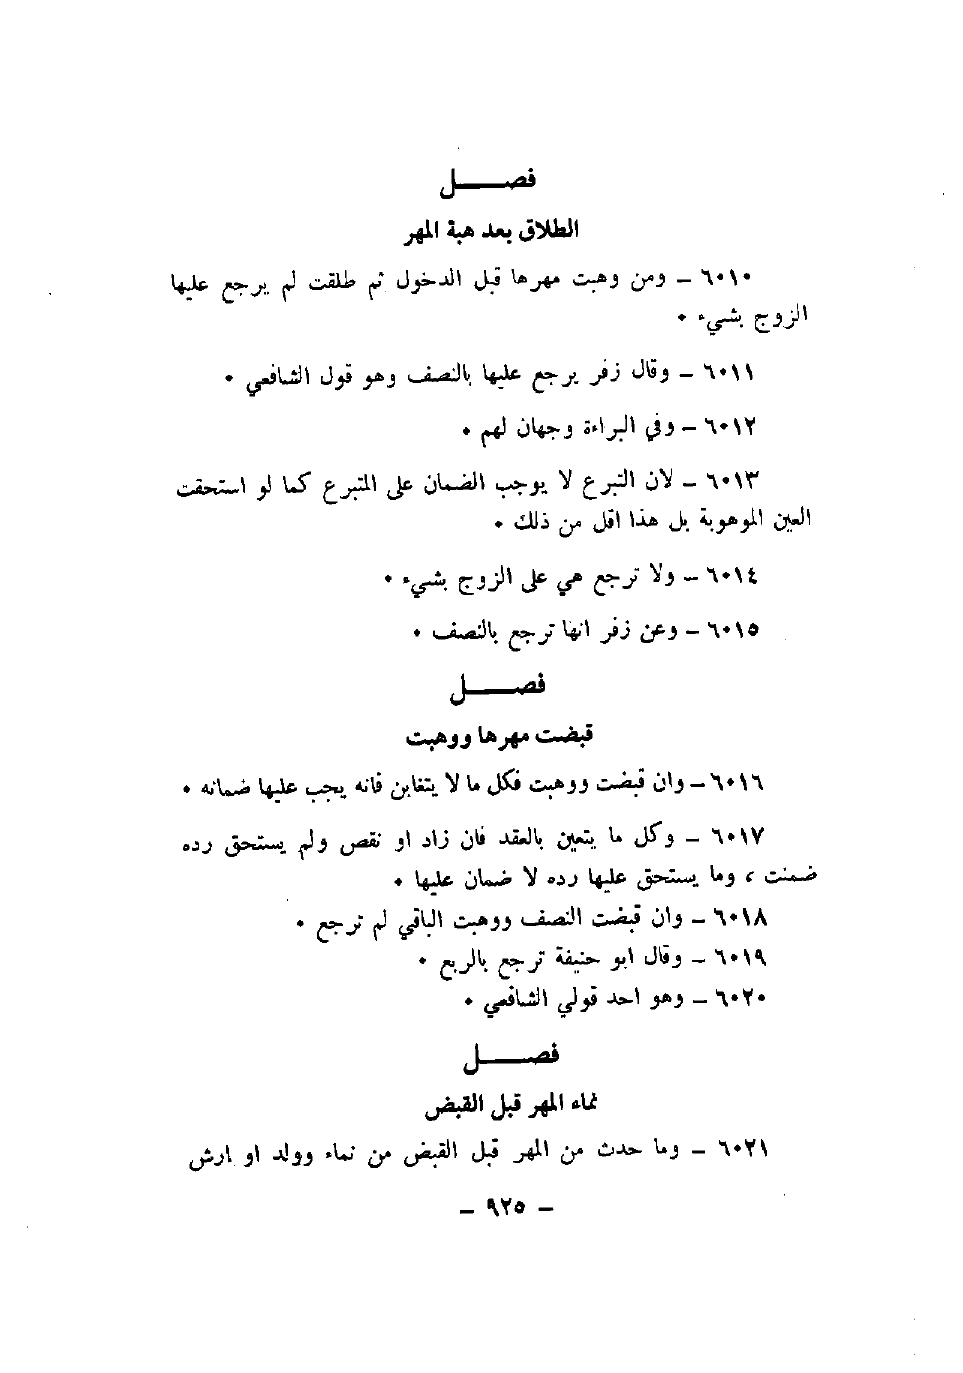 فصـــــل
الطلاق بعد هبة المهر
٦٠١٠ – ومن وهبت مهرها قبل الدخول ثم طلقت لم يرجع عليها
الزوج بشيء ٠
٦٠١١ – وقال زفر يرجع عليها بالنصف وهو قول الشافعي ٠
٦٠١٢ – وفي البراءة وجهان لهم ٠
٦٠١٣ – لان التبرع لا يوجب الضمان على المتبرع كما لو استحقت
العين الموهوبة بل هذا اقل من ذلك ٠
٦٠١٤ – ولا ترجع هي على الزوج بشيء ٠
٦٠١٥ – وعن زفر انها ترجع بالنصف ٠
فصـــــل
قبضت مهرها ووهبت
٦٠١٦ – وان قبضت ووهبت فكل ما لا يتغابن فانه يجب عليها ضمانه ٠
٦٠١٧ – وكل ما يتعين بالعقد فان زاد او نقص ولم يستحق رده
ضمنت ، وما يستحق عليها رده لا ضمان عليها ٠
٦٠١٨ – وان قبضت النصف ووهبت الباقي لم ترجع ٠
٦٠١٩ – وقال ابو حنيفة ترجع بالربع ٠
٦٠٢٠ – وهو احد قولي الشافعي ٠
فصـــــل
نماء المهر قبل القبض
٦٠٢١ – وما حدث من المهر قبل القبض من نماء وولد او ارش
– ٩٢٥ –